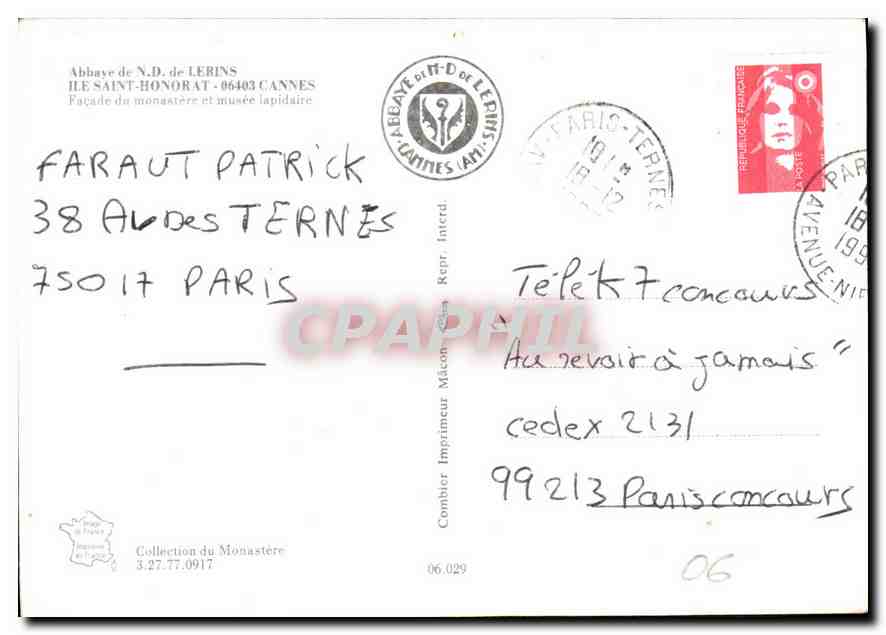 Abbaye de N.D. de LERINS
ILE SAINT-HONORAT - 06403 CANNES
Façade du monastère et musée lapidaire
ABBAYE DE N-D DE LERINS
CANNES (AM)
AV. PARIS-TERNES
18-12
RÉPUBLIQUE FRANÇAISE
LA POSTE
PAR
18
199
AVENUE-NIE
FARAUT PATRICK
38 AV des TERNES
75017 PARIS
Télé K7 concours
"Au revoir à jamais"
cedex 2131
99213 Paris concours
CPAPHIL
Combier Imprimeur Mâcon
Repr. Interd.
Image de France
Imprimée en France
Collection du Monastère
3.27.77.0917
06.029
06